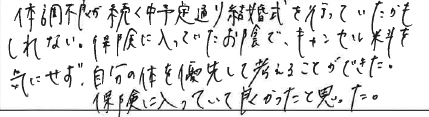 体調不良が続く中予定通り結婚式を行っていたかも
しれない。保険に入っていたお陰で、キャンセル料を
気にせず、自分の体を優先して考えることができた。
保険に入っていて良かったと思った。